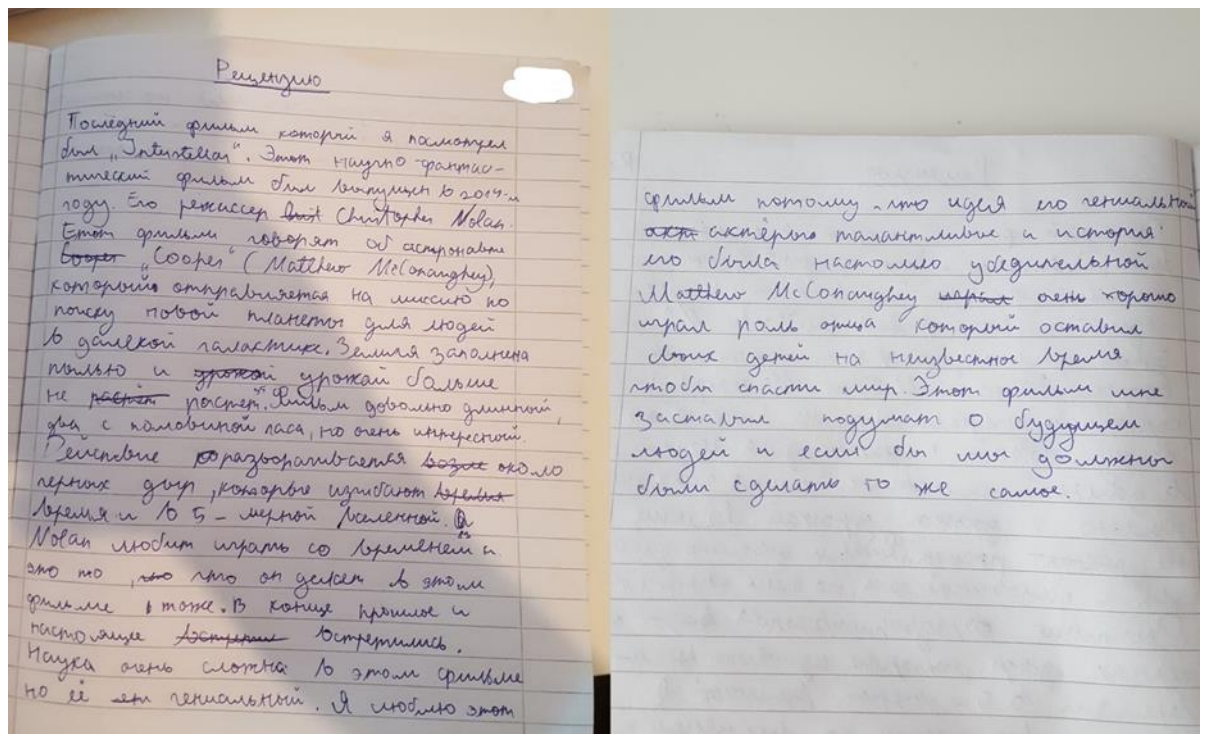 Рецензию
Последний фильм который я посмотрел
был „Interstellar". Этот научно-фантас-
тический фильм был выпущен в 2014-м
году. Его режиссер Christopher Nolan.
Етот фильми говорят об астронавте
„Cooper" (Matthew McConanghey),
который отправляется на миссию по
поиску новой планеты для людей
в далекой галактике. Земиля заполнена
пылью и урожай больше
не растет. Фильм довольно длинный,
два с половиной часа, но очень интересный.
Действие разворачивается около
черных дыр, которые изгибают
время и в 5-мерной вселенной.
Nolan любит играть со временем и
это то, что он делает в этом
фильме тоже. В конце прошлое и
настоящее встретились.
Наука очень сложна в этом фильме
но её гениальный. Я люблю этот
фильм потому-что идея его гениальный
актёры талантливые и история
его была настолько убедительной
Matthew McConanghey очень хорошо
играл роль отца который оставил
своих детей на неизвестное время
чтобы спасти мир. Этот фильм мне
заставил подумат о будущем
людей и если бы мы должны
были сделать то же самое.